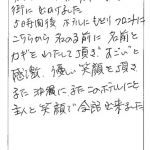 街に出かけました
5日時間後 ホテルにもどり フロントに
こちらから 私の名前に 名前と
カギをわたして頂き すごいと
感激、優しい笑顔を頂き
また 沖縄に またこのホテルにと
主人と 笑顔で 会話出来ました